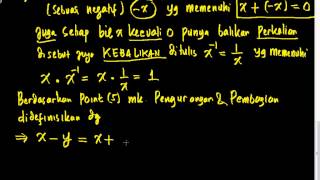 (sebuas negatif) -x yg memenuhi x + (-x) = 0
juga setiap bil x kecuali 0 punya balikan Perkalian
disebut juga KEBALIKAN ditulis x⁻¹ = 1/x yg memenuhi
x · x⁻¹ = x · 1/x = 1
Berdasarkan Point (5) mk Pengurangan & Pembagian
didefinisikan dg
⇒ x - y = x +